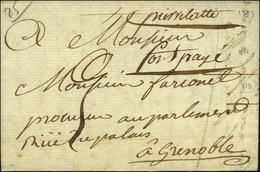 25
A Monsieur
Port payé
Monsieur farconet
procureur au parlement
Ruë du palais
à Grenoble